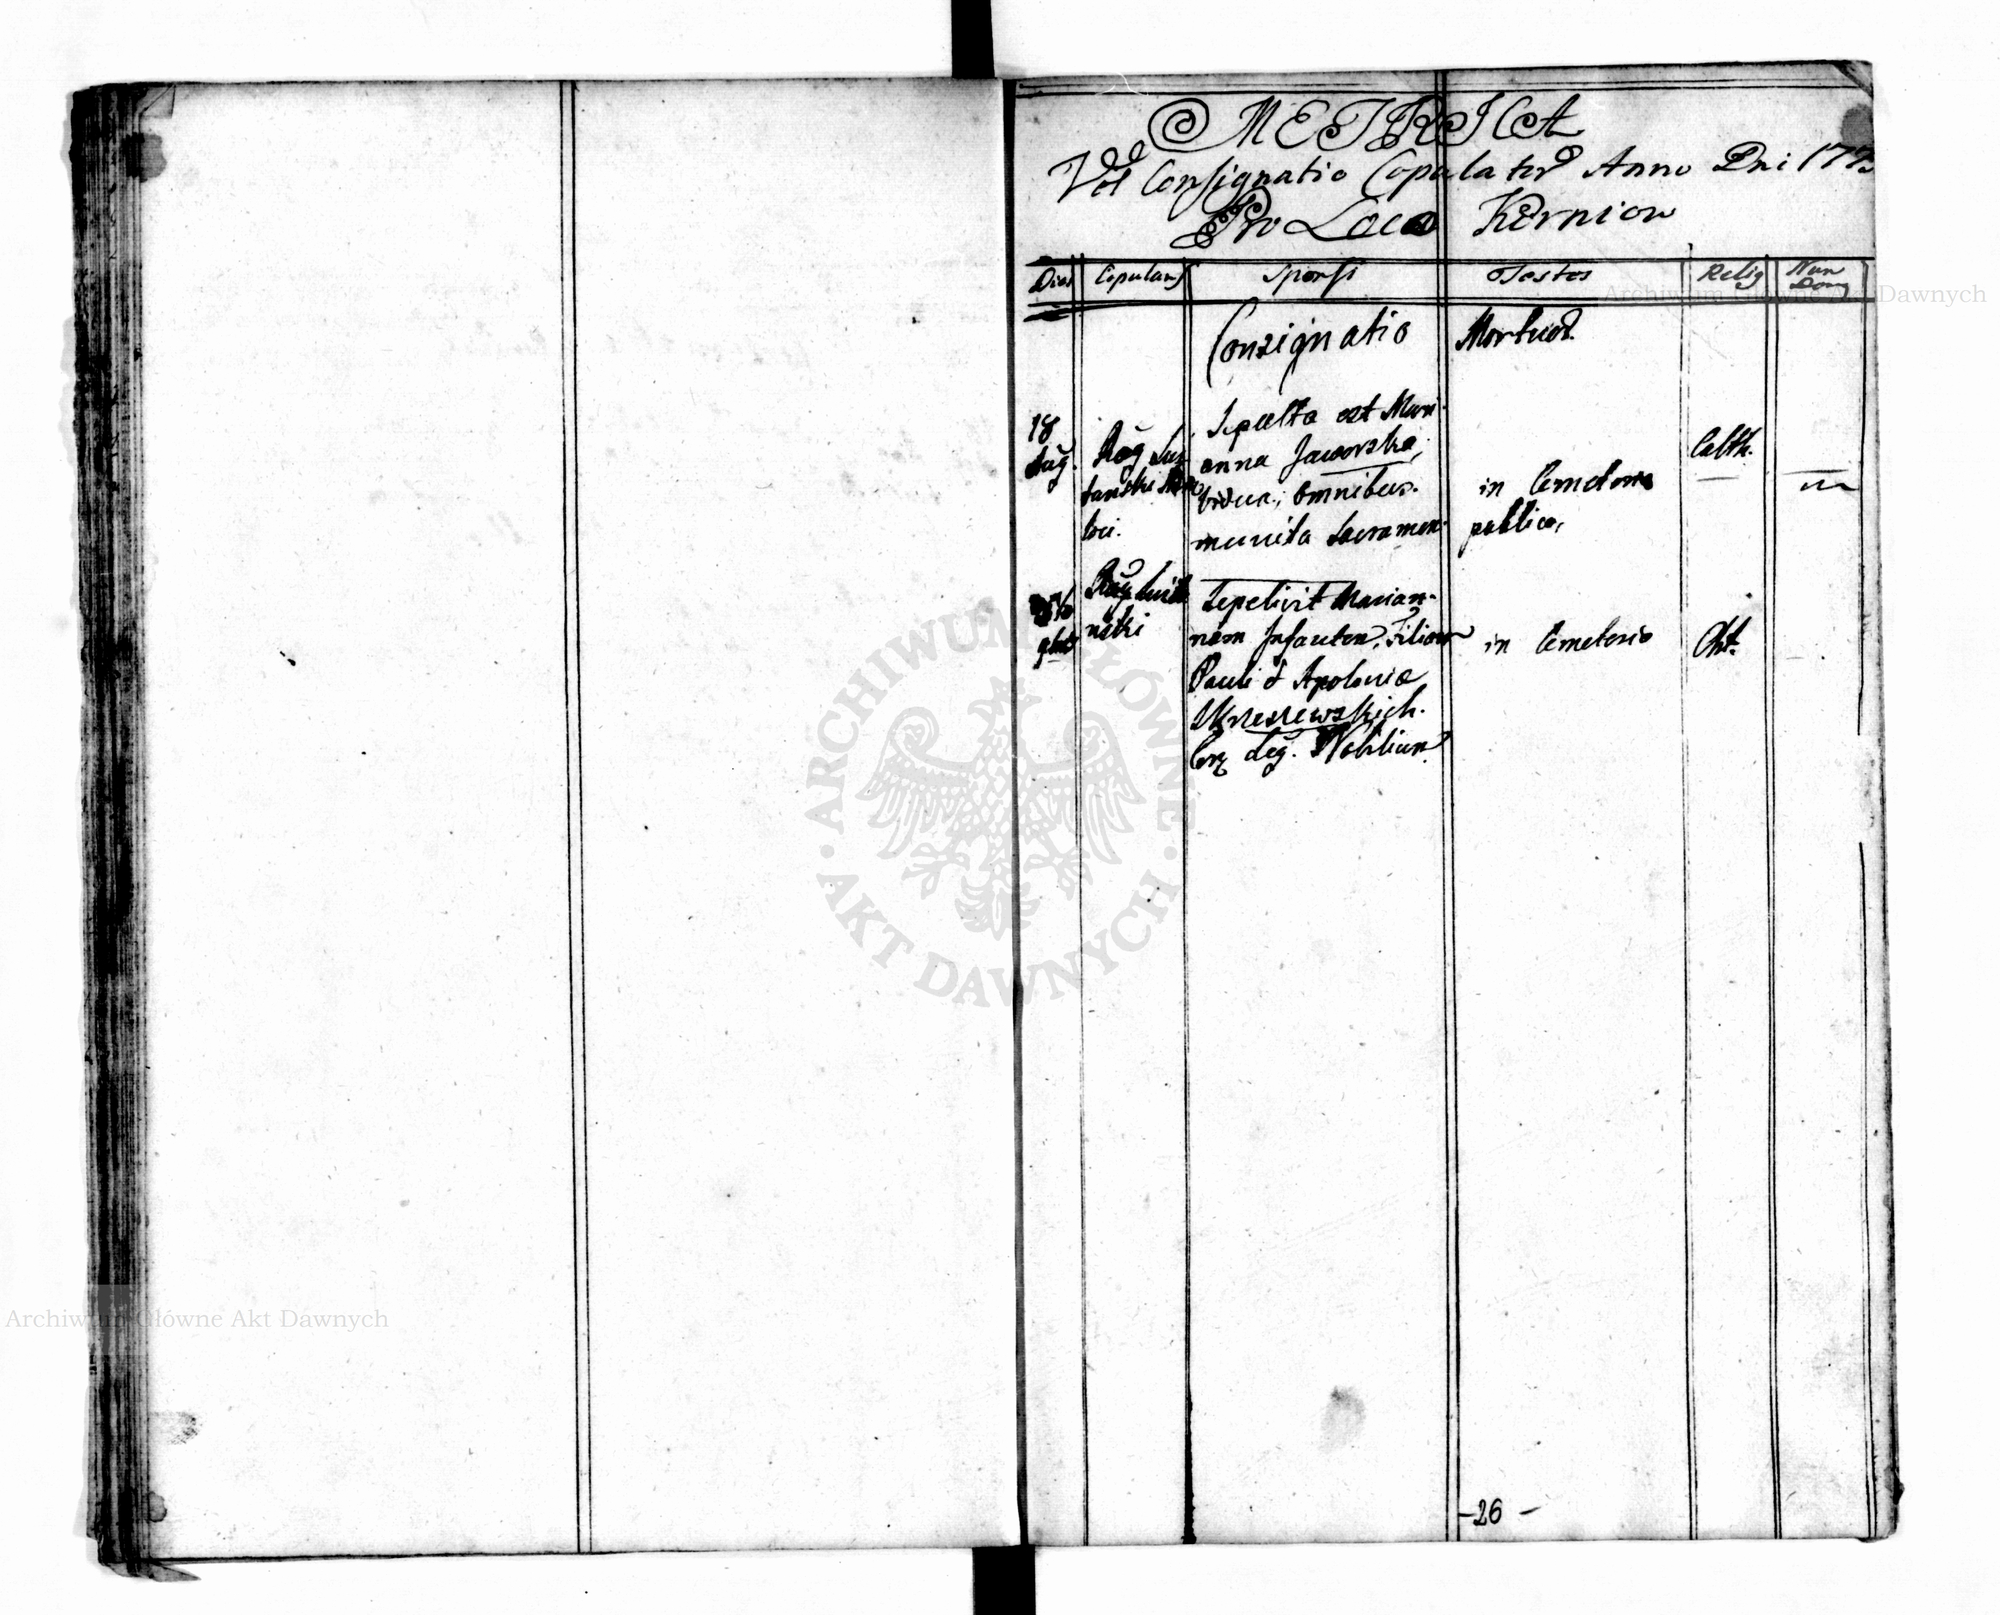 METRICA
Vel Consignatio Copulator Anno Dni 177
Pro Loco Kernion
Dies Copulans Sponsi Testes Relig Nun
Consignatio Mortuor.
18 Aug.
Sepulta est Mari-
anna Jaworska,
vidua, omnibus
munita Sacramen.
in Cemeterio
publico,
Cath.
Sepelivit Marian-
nam Infantem, Filiam
Pauli & Apoloniæ
Leg. Nobilium.
in Cemeterio
-26-
ARCHIWUM GŁÓWNE
AKT DAWNYCH
Archiwum Główne Akt Dawnych
Archiwum Główne Akt Dawnych